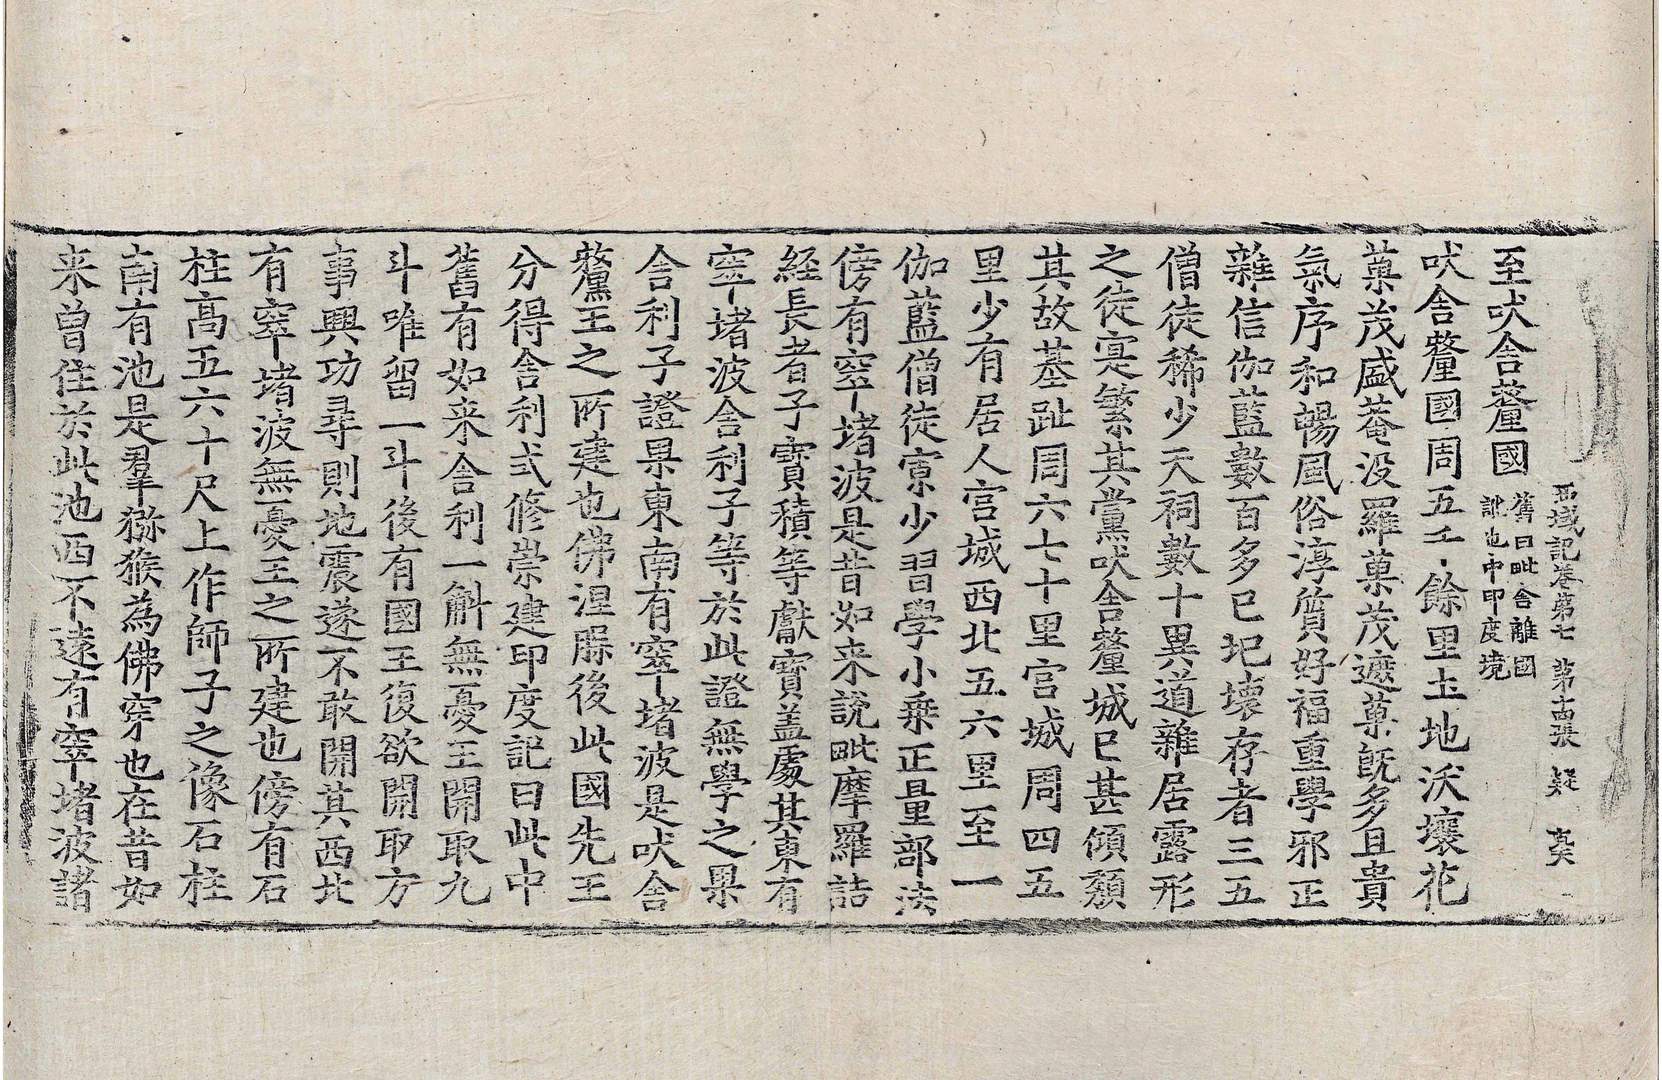 西域記卷第七　第十四張　疑　
至吠舍釐國舊曰毗舍離國訛也中印度境
吠舍釐國周五千餘里土地沃壤花
菓茂盛菴没羅菓茂遮菓既多且貴
氣序和暢風俗淳質好福重學邪正
雜信伽藍數百多已圮壞存者三五
僧徒稀少天祠數十異道雜居露形
之徒寔繁其黨吠舍釐城已甚傾頹
其故基趾周六七十里宫城周四五
里少有居人宫城西北五六里至一
伽藍僧徒寡少習學小乘正量部法
傍有窣堵波是昔如来說毗摩羅詰
經長者子寶積等獻寶盖處其東有
窣堵波舍利子等於此證無學之果
舍利子證果東南有窣堵波是吠舍
釐王之所建也佛涅槃後此國先王
分得舍利式修崇建印度記曰此中
舊有如来舍利一斛無憂王開取九
斗唯留一斗後有國王復欲開取方
事興功尋則地震遂不敢開其西北
有窣堵波無憂王之所建也傍有石
柱高五六十尺上作師子之像石柱
南有池是羣獼猴為佛穿也在昔如
来曾住於此池西不遠有窣堵波諸